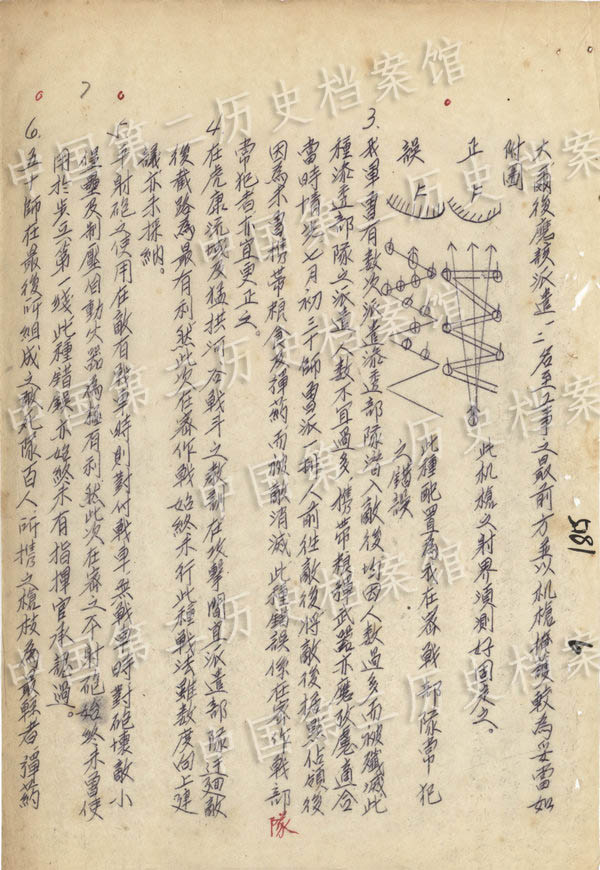 爾後應派遣一二名至工事之最前方並以机槍掩護較為妥當如
附图
正
此机槍之射界須測好固定之。
誤
此種配置為我在密戰部隊常犯
之錯誤
3. 我軍曾有數次派遣滲透部隊潛入敵後均因人數過多而被殲滅此
種滲透部隊之派遣人数不宜過多,携帶粮彈武器亦應攷慮適合
當時情况七月初三十師曾派一排人前往敵後將敵後據點佔領後
因為未曾携帶粮食及揮药而被敵消滅此種錯誤係在密作戰部隊
常犯者亦宜更正之。
4. 在虎康流域及猛拱河谷戰斗之教訓在攻擊間宜派遣部隊迂迴敵
後截路為最有利然此次在密作戰始終未行此種戰法雖数度向上建
議亦未採納。
5. 平射砲之使用在敵有戰車時則對付戰車無戰車時對砲壞敵小
堡壘及制壓自動火器為極有利然此次在密之平射砲始終未曾使
用於步兵第一线此種錯誤亦始終未有指揮官承認過。
6. 五十師在最後所組成之敢死隊百人所携之槍枝為最輕者彈药
185
中国第二历史档案馆